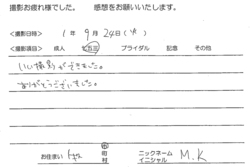 撮影お疲れ様でした。 感想をお願いいたします。
<撮影日時> 1年 9月 24日(火)
<撮影項目> 成人 七五三 ブライダル 記念 その他
いい撮影ができました。
ありがとうございました。
お住まい 町 村
ニックネーム イニシャル M.K